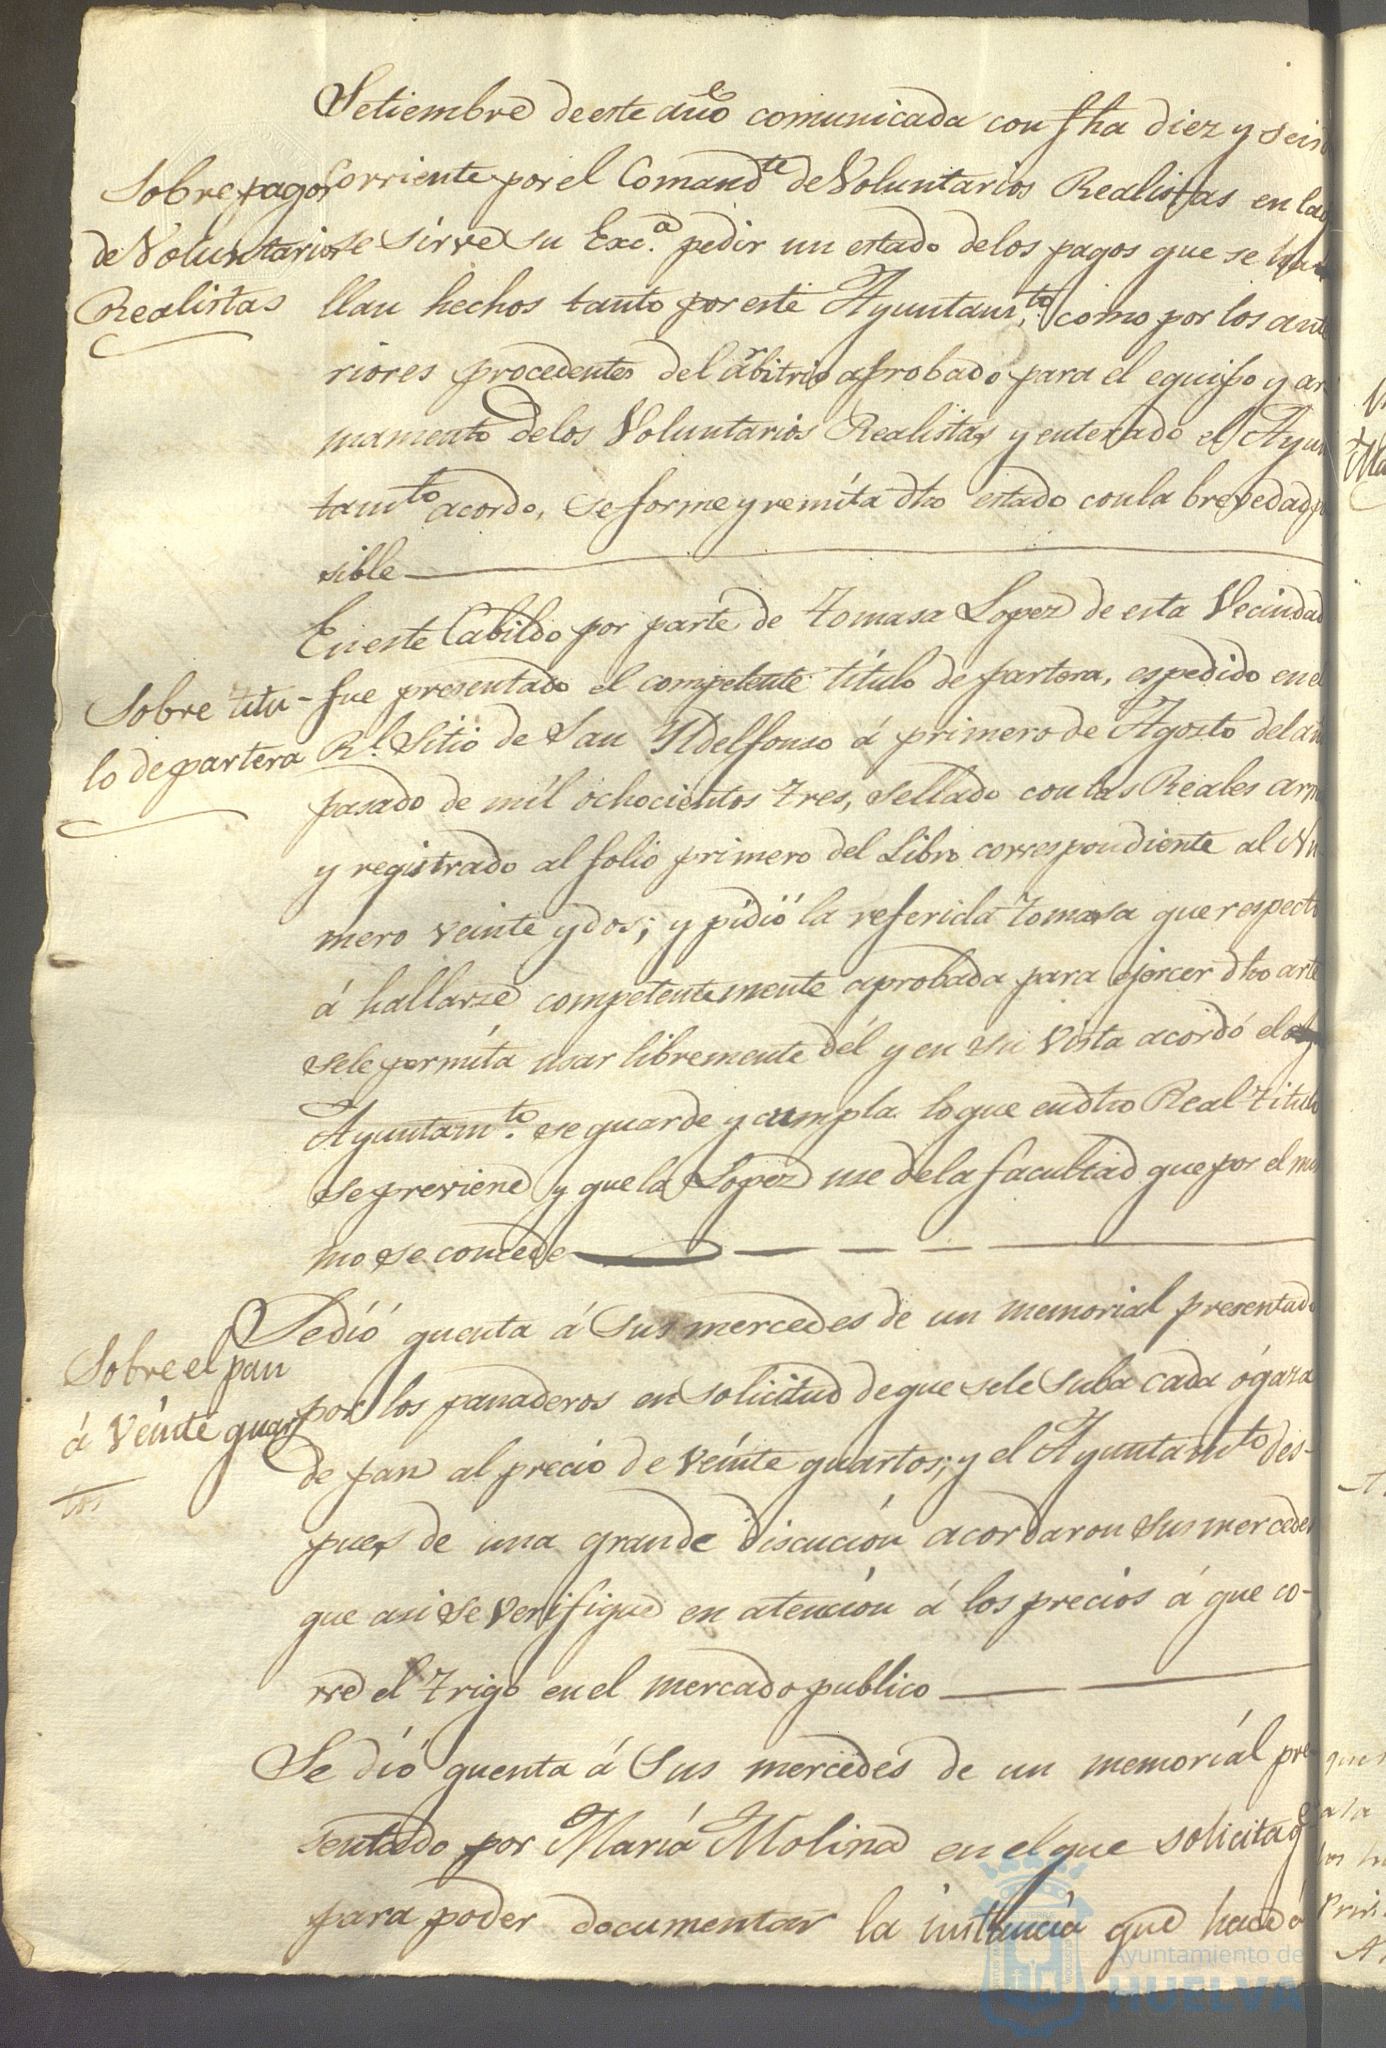 Setiembre de este año comunicada con fha diez y seis
Sobre pagos
de Voluntarios
Realistas
corriente por el Comandte de Voluntarios Realistas en la
se sirve su Exc.a pedir un estado delos pagos que se ha
llan hechos tanto por este Ayuntamto, como por los ante
riores procedentes del arbitrio aprobado para el equipo y ar
mamento delos Voluntarios Realistas y enterado el Ayun
tamto acordo, se forme y remíta dho estado conla brevedad po
sible
En este Cabildo por parte de Tomasa Lopez de esta Vecindad
Sobre titu-
lo de partera
fue presentado el competente título de partera, espedido en el
Rl. Sitio de San Yldelfonso á primero de Agosto del añ
pasado de míl ochocientos tres, sellado con las Reales arm
y registrado al folio primero del Libro correspondiente al Nu
mero veinte y dos; y pidió la referida Tomasa que respecto
á hallarze competentemente aprobada para ejercer dho arte
sele permíta usar libremente dél y en su vista acordó el
Ayuntamto. se guarde y cumpla lo que en dho Real Titulo
se previene y que la Lopez use dela facultad que por el mis
mo se concede
Sobre el pan
á veinte quar
tos
Se dió quenta á Sus mercedes de un memorial presentado
por los panaderos en solicitud de que sele suba cada ógaza
de pan al precio de veínte quartos; y el Ayuntamto des-
pues de una grande discución acordaron sus mercedes
que asi se verifique en atención á los precios á que co-
rre el trigo en el mercado publico
Se dió quenta á Sus mercedes de un memoríal pre
sentado por María Molina en el que solicita qe
para poder documentar la instancia que hace á
Ayuntamiento de
HUELVA